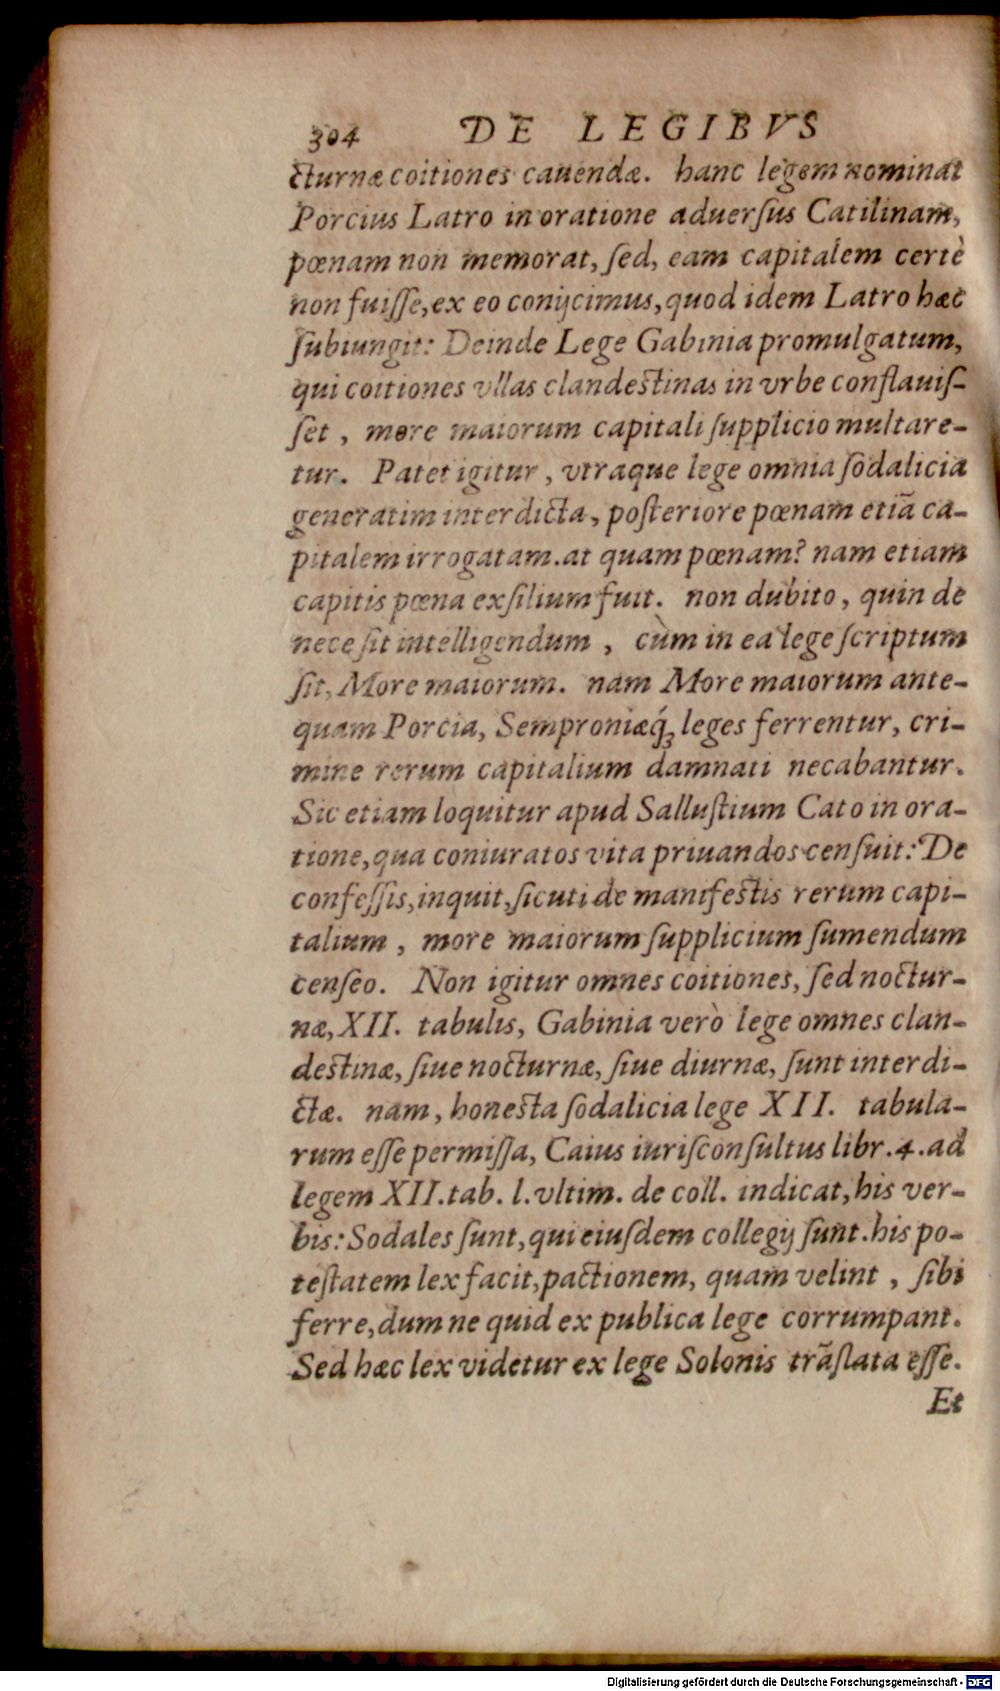 304 DE LEGIBVS
cturnæ coitiones cauendæ. hanc legem nominat
Porcius Latro in oratione aduerſus Catilinam,
pœnam non memorat, ſed, eam capitalem certè
non fuiſſe, ex eo conijcimus, quod idem Latro hæc
ſubiungit: Deinde Lege Gabinia promulgatum,
qui coitiones vllas clandeſtinas in vrbe conflauiſ-
ſet, more maiorum capitali ſupplicio multare-
tur. Patet igitur, vtraque lege omnia ſodalicia
generatim interdicta, poſteriore pœnam etiã ca-
pitalem irrogatam. at quam pœnam? nam etiam
capitis pœna exſilium fuit. non dubito, quin de
nece ſit intelligendum, cùm in ea lege ſcriptum
ſit, More maiorum. nam More maiorum ante-
quam Porcia, Semproniæq́ꝫ leges ferrentur, cri-
mine rerum capitalium damnati necabantur.
Sic etiam loquitur apud Salluſtium Cato in ora-
tione, qua coniuratos vita priuandos cenſuit: De
confeſſis, inquit, ſicuti de manifeſtis rerum capi-
talium, more maiorum ſupplicium ſumendum
cenſeo. Non igitur omnes coitiones, ſed noctur-
næ, XII. tabulis, Gabinia verò lege omnes clan-
deſtinæ, ſiue nocturnæ, ſiue diurnæ, ſunt interdi-
ctæ. nam, honeſta ſodalicia lege XII. tabula-
rum eſſe permiſſa, Caius iuriſconſultus libr. 4. ad
legem XII. tab. l. vltim. de coll. indicat, his ver-
bis: Sodales ſunt, qui eiuſdem collegij ſunt. his po-
teſtatem lex facit, pactionem, quam velint, ſibi
ferre, dum ne quid ex publica lege corrumpant.
Sed hæc lex videtur ex lege Solonis trãſlata eſſe.
Et
Digitalisierung gefördert durch die Deutsche Forschungsgemeinschaft - DFG